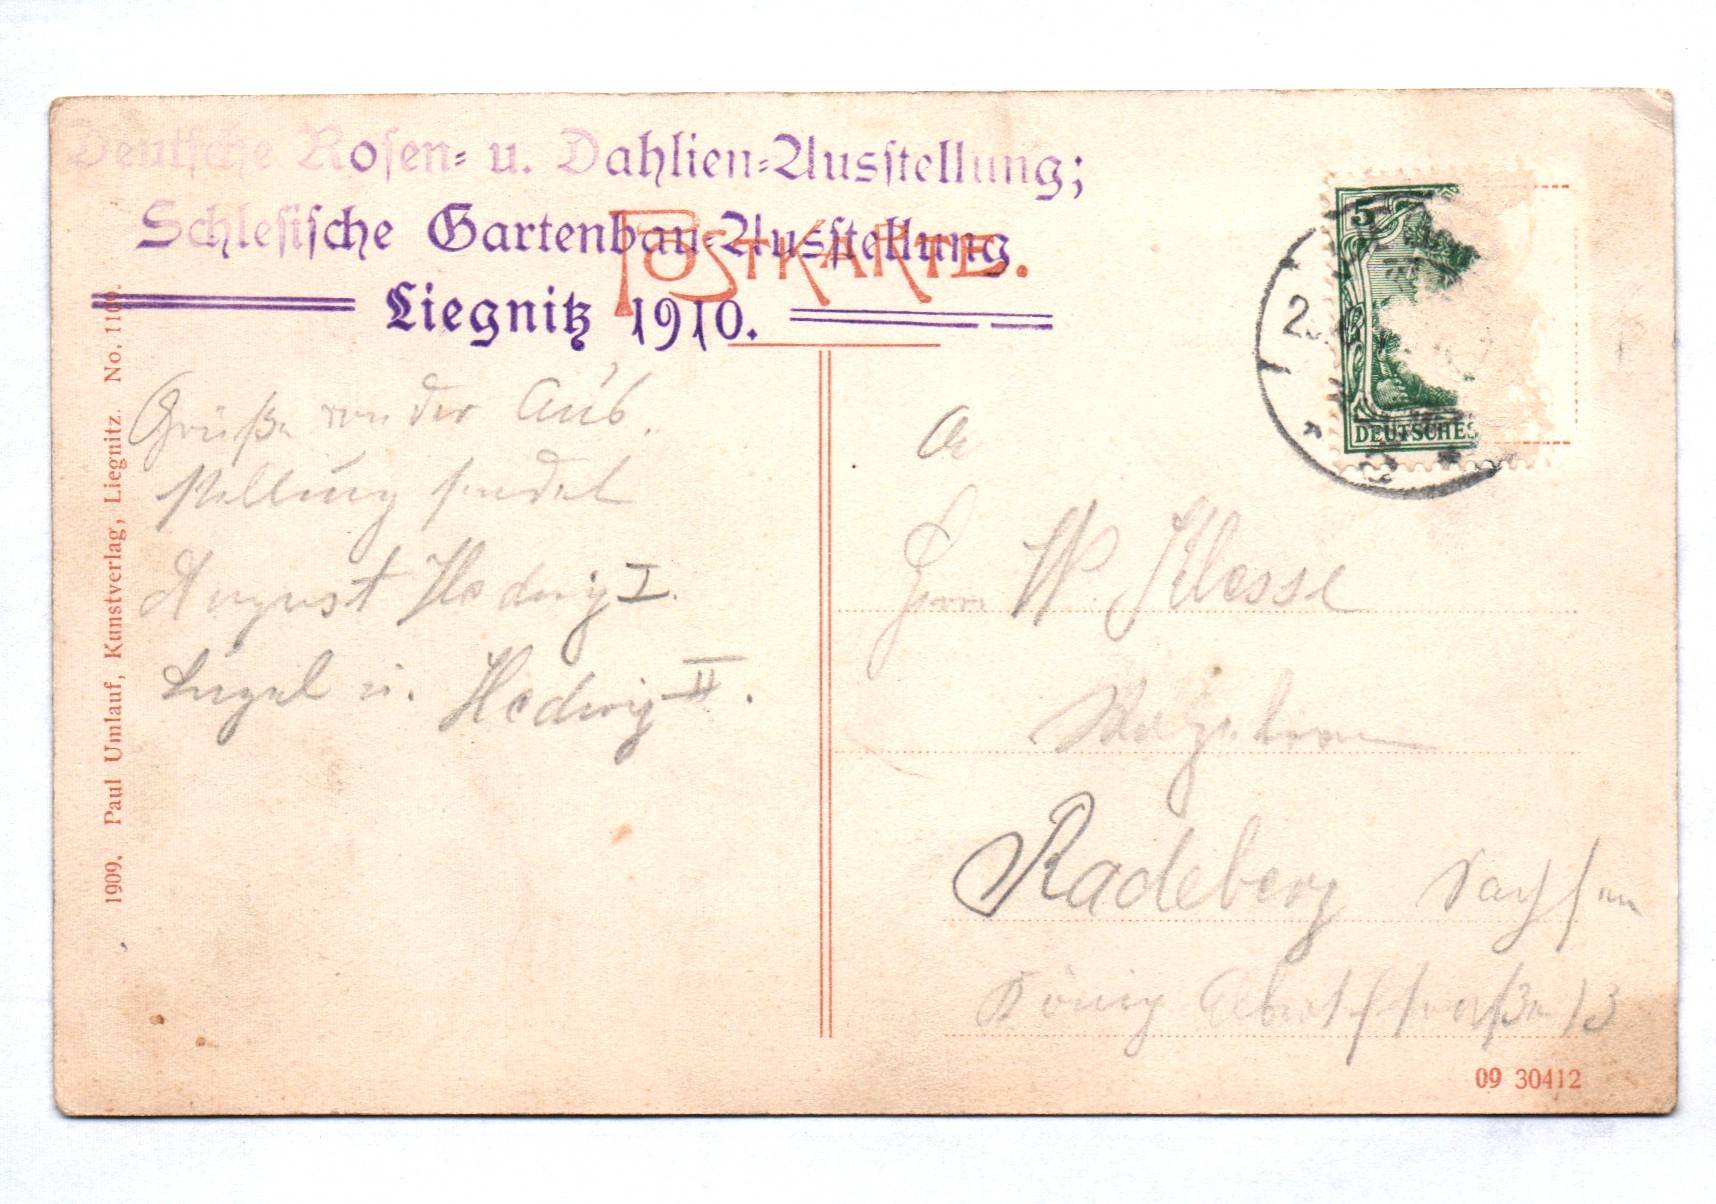 Deutsche Rosen= u. Dahlien=Ausstellung;
Schlesische Gartenbau=Ausstellung
Liegnitz 1910.
POSTKARTE.
5
DEUTSCHES
Grüße von der Aus
stellung sendet
August Hedwig I.
u. Hedwig II.
Herrn W. Klesse
Radeberg Sachsen
König Albertstraße 13
1909. Paul Umlauf, Kunstverlag, Liegnitz. No.
09 30412